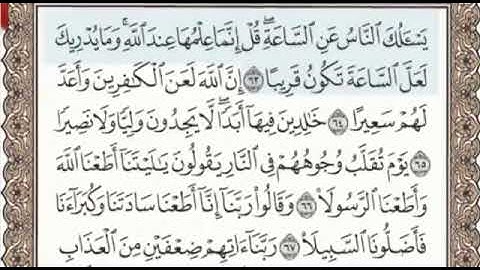 يَسْـَٔلُكَ ٱلنَّاسُ عَنِ ٱلسَّاعَةِۖ قُلْ إِنَّمَا عِلْمُهَا عِندَ ٱللَّهِۚ وَمَا يُدْرِيكَ
لَعَلَّ ٱلسَّاعَةَ تَكُونُ قَرِيبًا ٦٣ إِنَّ ٱللَّهَ لَعَنَ ٱلْكَٰفِرِينَ وَأَعَدَّ
لَهُمْ سَعِيرًا ٦٤ خَٰلِدِينَ فِيهَآ أَبَدًاۖ لَّا يَجِدُونَ وَلِيًّا وَلَا نَصِيرًا
٦٥ يَوْمَ تُقَلَّبُ وُجُوهُهُمْ فِى ٱلنَّارِ يَقُولُونَ يَٰلَيْتَنَآ أَطَعْنَا ٱللَّهَ
وَأَطَعْنَا ٱلرَّسُولَا۠ ٦٦ وَقَالُوا۟ رَبَّنَآ إِنَّآ أَطَعْنَا سَادَتَنَا وَكُبَرَآءَنَا
فَأَضَلُّونَا ٱلسَّبِيلَا۠ ٦٧ رَبَّنَآ ءَاتِهِمْ ضِعْفَيْنِ مِنَ ٱلْعَذَابِ